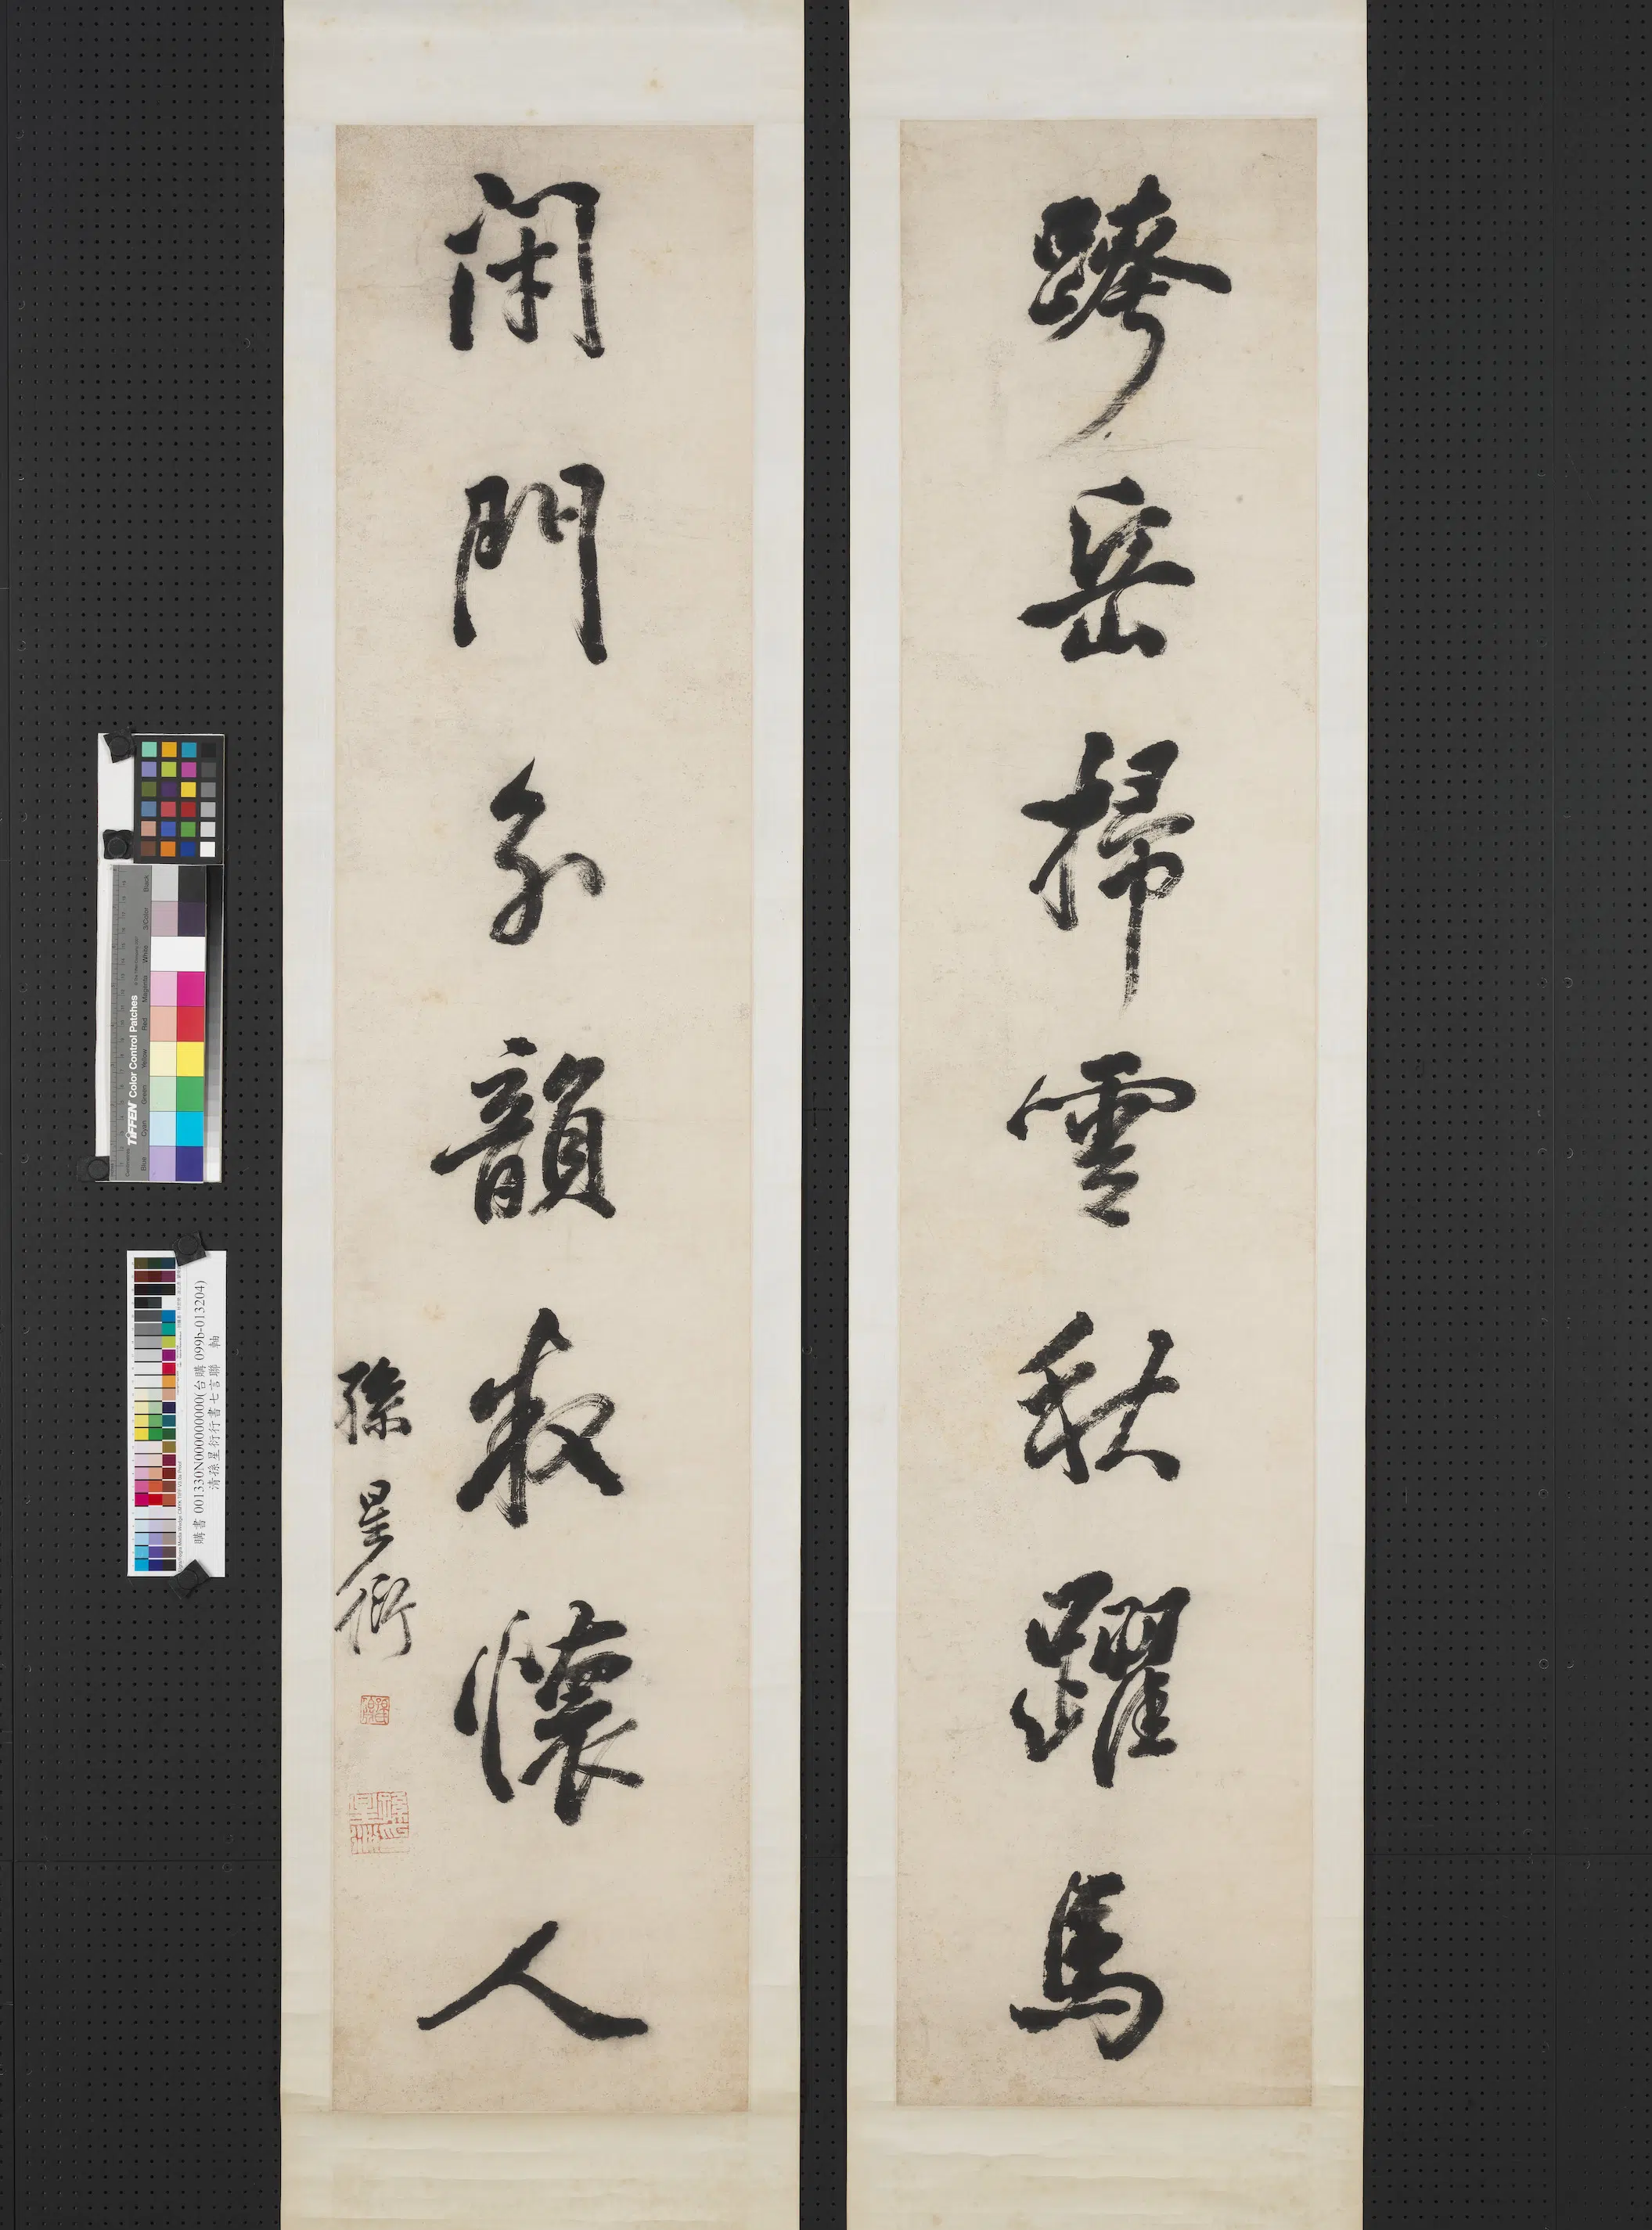 跨岳掃雲秋躍馬
閉門分韻懷人
孫星衍
TIFFEN Color Control Patches
Blue Cyan Green Yellow Red Magenta White 3/Color Black
購書 001330N000000000(台購 099b-013204)
清孫星衍行書七言聯 軸